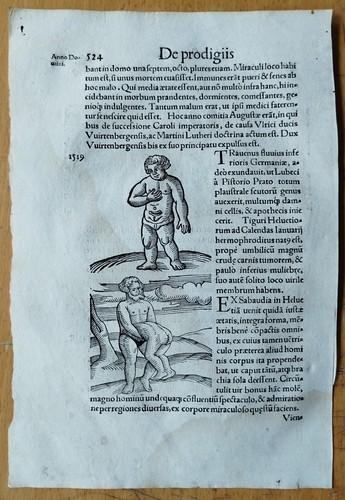 Anno Do-
mini.
524
De prodigiis
bant in domo una septem, octo, plures etiam. Miraculi loco habi
tum est, si unus mortem euasisset. Immunes erāt pueri & senes ab
hoc malo. Qui media ætate essent, aut nō multo infra hanc, hi in-
cidebant in morbum prandentes, dormientes, comessantes, ge-
nioq; indulgentes. Tantum malum erat, ut ipsi medici fateren-
tur se nescire quid esset. Hoc anno comitia Augustæ erāt, in qui
bus de successione Caroli imperatoris, de causa Vlrici ducis
Vuirtenbergensis, ac Martini Lutheri doctrina actum est. Dux
Vuirtenbergensis bis ex suo principatu expulsus est.
1519
TRauenus fluuius infe
rioris Germaniæ, a-
deo exundauit, ut Lubeci
à Pistorio Prato totum
plaustrale scutorū genus
auexerit, multumq; dam
ni cellis, & apothecis inie
cerit. Tiguri Heluetio-
rum ad Calendas Ianuarij
hermophroditus natꝰ est,
propè umbilicū magnū
crudę carnis tumorem, &
paulò inferius muliebre,
suo autē solito loco uirile
membrum habens.
EX Sabaudia in Helue
tiā uenit quidā iustæ
ætatis, integra forma, mē
bris benè cōpactis omni-
bus, ex cuius tamen uētri
culo præterea aliud homi
nis corpus ita propende-
bat, ut caput tātū, atq; bra
chia sola deessent. Circū-
tulit uir bonus hāc molē,
magno hominū undequaq; cōfluentiū spectaculo, & admiratio-
ne per regiones diuersas, ex corpore miraculoso quęstū faciens.
Vien-